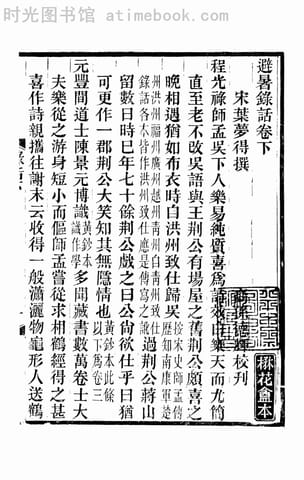 时光图书馆 atimebook.com
避暑錄話卷下
宋葉夢得撰
校刊
楳花盦本
程光祿師孟吳下人樂易純質喜爲詩效白樂天而尤簡
直至老不改吳語與王荆公有場屋之舊荆公頗喜之
晩相遇猶如布衣時自洪州致仕歸吳
過荆公蔣山
留數日時已年七十餘荆公戲之曰公尙欲仕乎曰猶
可更作一郡荆公大笑知其無隱情也
元豐間道士陳景元博識多聞藏書數萬卷士大
夫樂從之游身短小而傴師孟嘗從求相鶴經得之甚
喜作詩親攜往謝末云收得一般瀟灑物龜形人送鶴